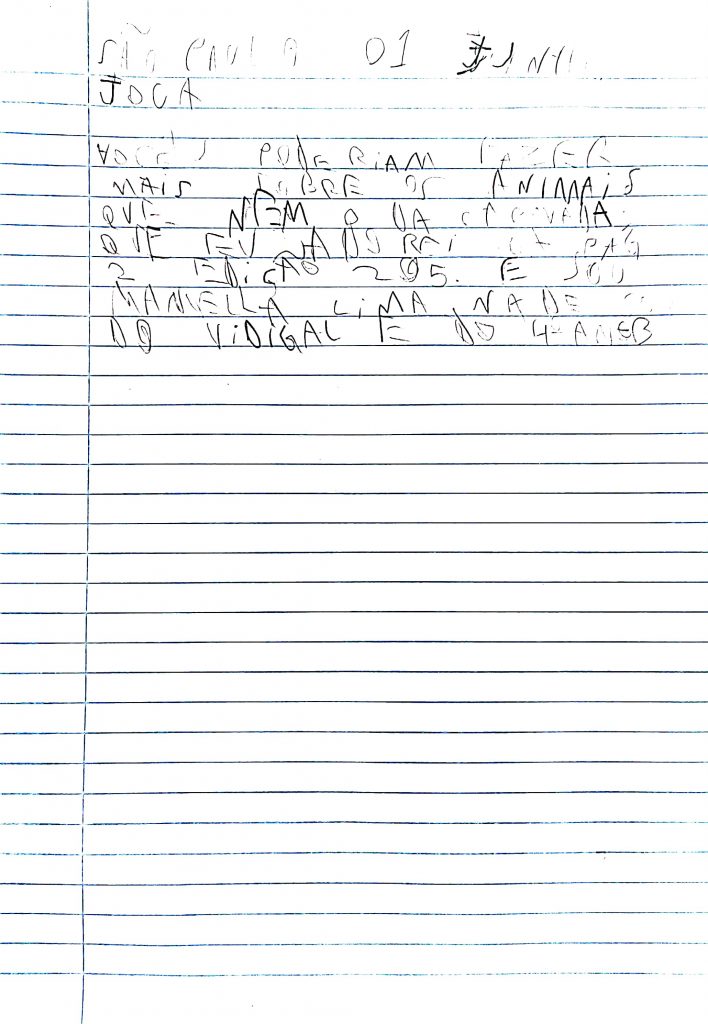 SÃO PAULO 01 JUNHO
JOCA
VOCÊS PODERIAM FAZER
MAIS SOBRE OS ANIMAIS
QUE NEM O DA CAPIVARA
QUE EU ADOREI PAG
2 EDIÇÃO 205. E SOU
MANUELLA LIMA NADE
DO VIDIGAL E DO